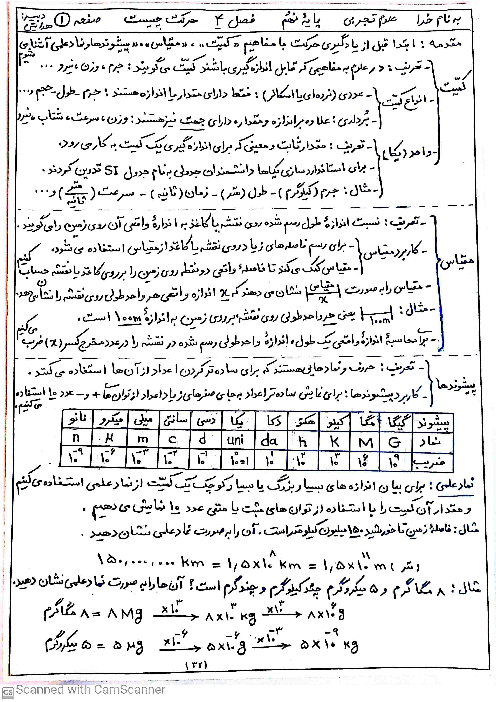 به نام خدا علوم تجربی پایهٔ نهم فصل ۴ حرکت چیست صفحه ۱
مقدمه : ابتدا قبل از یادگیری حرکت با مفاهیم «کمیّت» ، «مقیاس» ، «پیشوندها و نماد علمی» آشنا می شویم
کمیّت
تعریف : در علوم به مفاهیمی که قابل اندازه گیری باشند کمیّت می گویند : جرم ، وزن ، نیرو ...
انواع کمیّت
عددی (نرده ای یا اسکالر) : فقط دارای مقدار یا اندازه هستند : جرم - طول - حجم و...
بُرداری : علاوه بر اندازه و مقدار دارای جهت نیز هستند : وزن ، سرعت ، شتاب ، نیرو
واحد (یکا)
تعریف : مقدار ثابت و معینی که برای اندازه گیری یک کمیّت به کار می رود.
برای استانداردسازی یکاها دانشمندان جدولی به نام جدول SI تدوین کردند.
مثال : جرم (کیلوگرم) - طول (متر) - زمان (ثانیه) - سرعت (متر/ثانیه) و ...
مقیاس
تعریف : نسبت اندازهٔ طول رسم شده روی نقشه یا کاغذ به اندازهٔ واقعی آن روی زمین را می گویند .
کاربرد مقیاس
برای رسم فاصله های زیاد در روی نقشه یا کاغذ از مقیاس استفاده می شود.
مقیاس کمک می کند تا فاصلهٔ واقعی دو نقطه روی زمین را بر روی کاغذ یا نقشه حساب کنیم
مقیاس را به صورت مقیاس/x نشان می دهند که x اندازه واقعی هر واحد طولی روی نقشه را نشان می دهد.
مثال : 100m یعنی هر واحد طولی روی نقشه بر روی زمین به اندازهٔ 100m است .
برای محاسبهٔ اندازهٔ واقعی یک طول ، اندازهٔ واحد طولی رسم شده در نقشه را در عدد مخرج کسر (x) ضرب می کنیم
پیشوندها
تعریف : حروف و نمادهایی هستند که برای ساده تر کردن اعداد از آن ها استفاده می کنند .
کاربرد پیشوندها : برای نمایش ساده تر اعداد به جای صفرهای زیاد اعداد از توان های + و - عدد ۱۰ استفاده می کنیم.
پیشوند گیگا مگا کیلو هکتو دکا یکا دسی سانتی میلی میکرو نانو
نماد G M K h da uni d c m µ n
ضریب 10⁹ 10⁶ 10³ 10² 10¹ 10⁰=1 10⁻¹ 10⁻² 10⁻³ 10⁻⁶ 10⁻⁹
نماد علمی : برای بیان اندازه های بسیار بزرگ یا بسیار کوچک یک کمیّت از نماد علمی استفاده می کنیم
و مقدار آن کمیّت را با استفاده از توان های مثبت یا منفی عدد ۱۰ نمایش می دهیم .
مثال : فاصلهٔ زمین تا خورشید ۱۵۰ میلیون کیلومتر است . آن را به صورت نماد علمی نشان دهید .
۱۵۰,۰۰۰,۰۰۰ km = ۱,۵×۱۰⁸ km = ۱,۵×۱۰¹¹ m (متر)
مثال : ۸ مگاگرم و ۵ میکروگرم چند کیلوگرم و چند گرم است؟ آن ها را به صورت نماد علمی نشان دهید.
۸ مگاگرم = ۸ Mg ×۱۰³ ۸×۱۰³ kg ×۱۰³ ۸×۱۰⁶ g
۵ میکروگرم = ۵ µg ×۱۰⁻⁶ ۵×۱۰⁻⁶ g ×۱۰⁻³ ۵×۱۰⁻⁹ kg
(۳۲)
CS Scanned with CamScanner